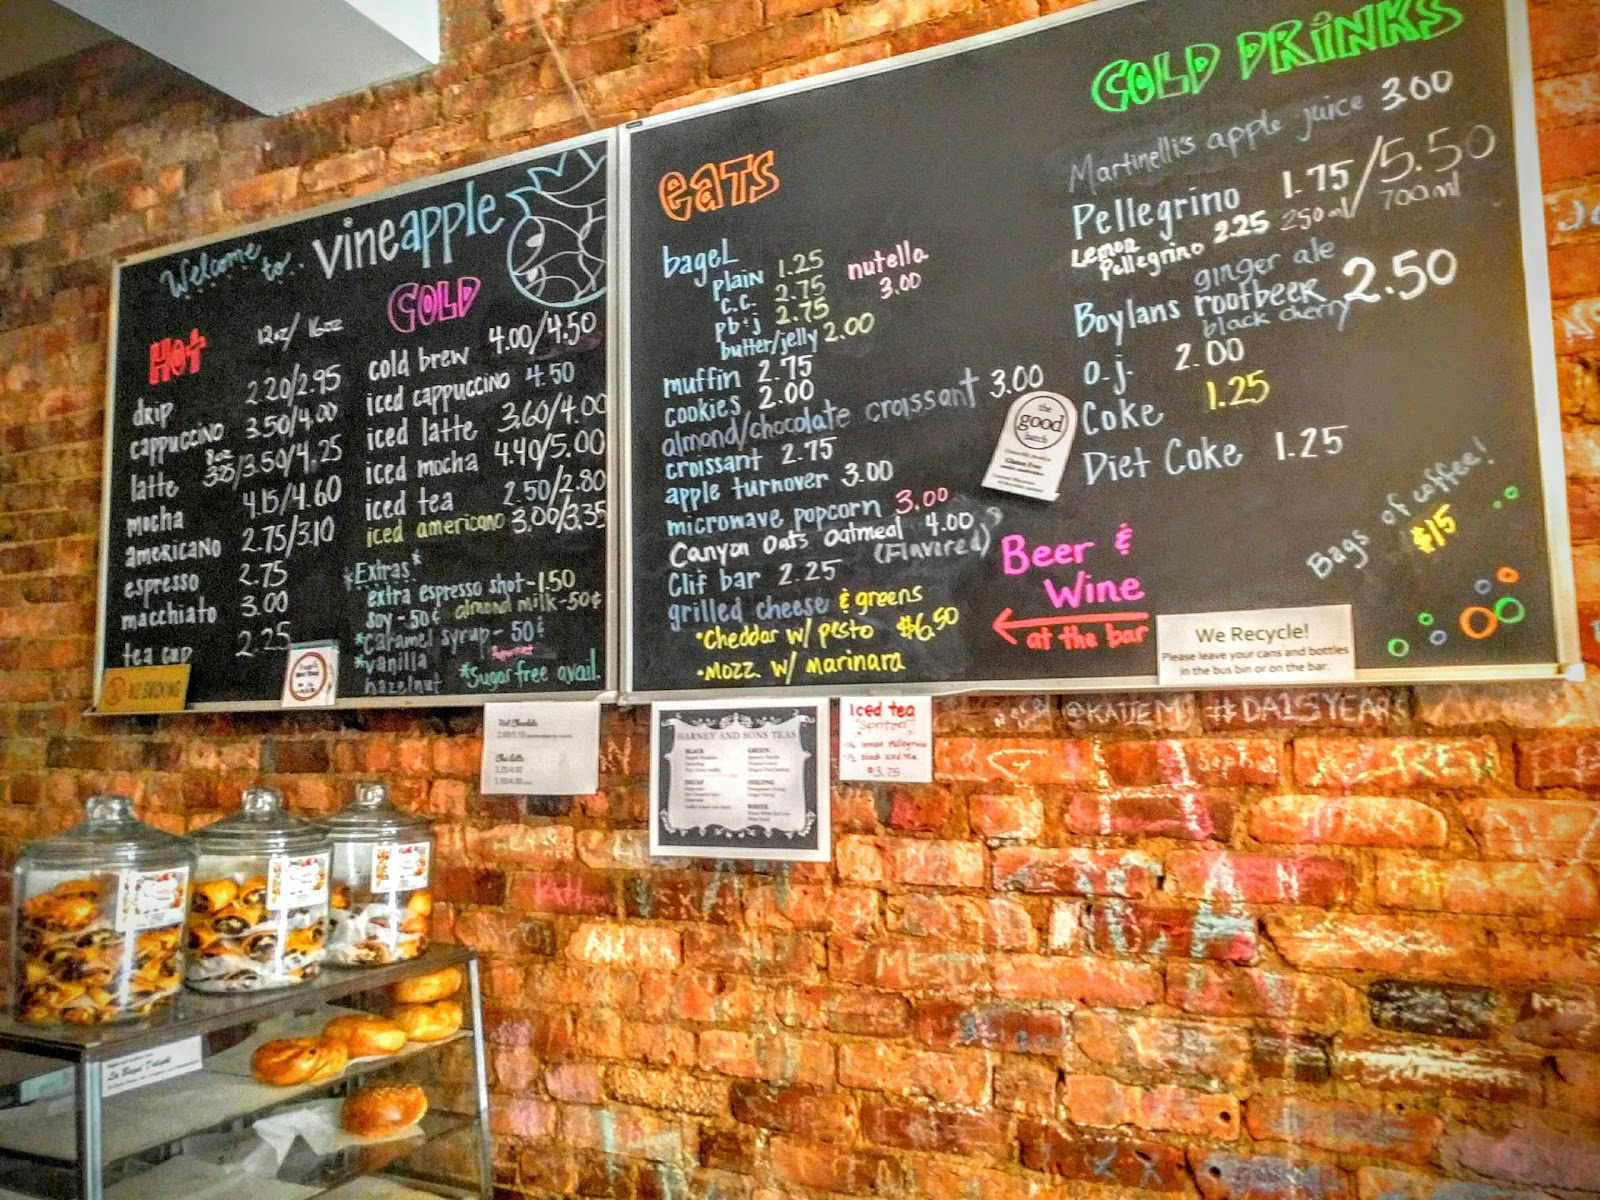 Welcome to.. vineapple
HOT
12oz/ 16oz
drip 2.20/2.95
cappuccino 3.50/4.00
latte 8oz 3.25/3.50/4.25
mocha 4.15/4.60
americano 2.75/3.10
espresso 2.75
macchiato 3.00
tea cup 2.25
NO SMOKING
COLD
cold brew 4.00/4.50
iced cappuccino 4.50
iced latte 3.60/4.00
iced mocha 4.40/5.00
iced tea 2.50/2.80
iced americano 3.00/3.35
*Extras*
extra espresso shot-1.50
soy-50¢ almond milk-50¢
*Caramel syrup-50¢
*vanilla
hazelnut
*Sugar free avail.
eats
bagel
plain 1.25
c.c. 2.75
pb&j 2.75
butter/jelly 2.00
nutella
3.00
muffin 2.75
cookies 2.00
almond/chocolate croissant 3.00
croissant 2.75
apple turnover 3.00
microwave popcorn 3.00
Canyon Oats Oatmeal 4.00
(Flavored)
Clif bar 2.25
grilled cheese & greens
•Cheddar w/ pesto $6.50
•Mozz w/ Marinara
the
good
batch
COLD DRINKS
Martinelli's apple juice 3.00
Pellegrino 1.75/5.50
250ml 700ml
Lemon
Pellegrino 2.25
ginger ale
Boylans rootbeer 2.50
black cherry
o.j. 2.00
Coke 1.25
Diet Coke 1.25
Beer &
Wine
at the bar
Bags of coffee!
$15
We Recycle!
Please leave your cans and bottles
in the bus bin or on the bar.
Hot Chocolate
HARNEY AND SONS TEAS
BLACK
GREEN
WHITE
Iced tea
"Spritzer"
$3.75
#DA15YEARS